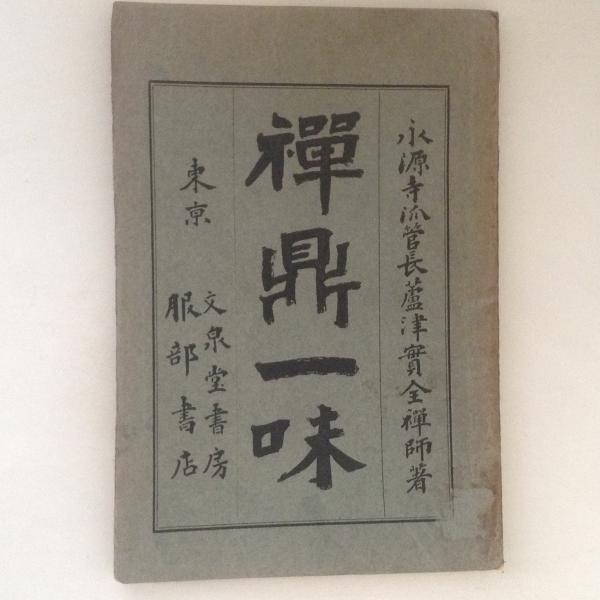 永源寺派管長蘆津實全禪師著
禪鼎一味
東京
文泉堂書房
服部書店